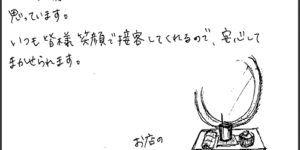 思っています。
いつも皆様笑顔で接客してくれるので、安心して
まかせられます。
お店の